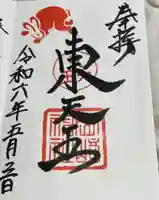 奉拝
東天王
令和六年五月三日